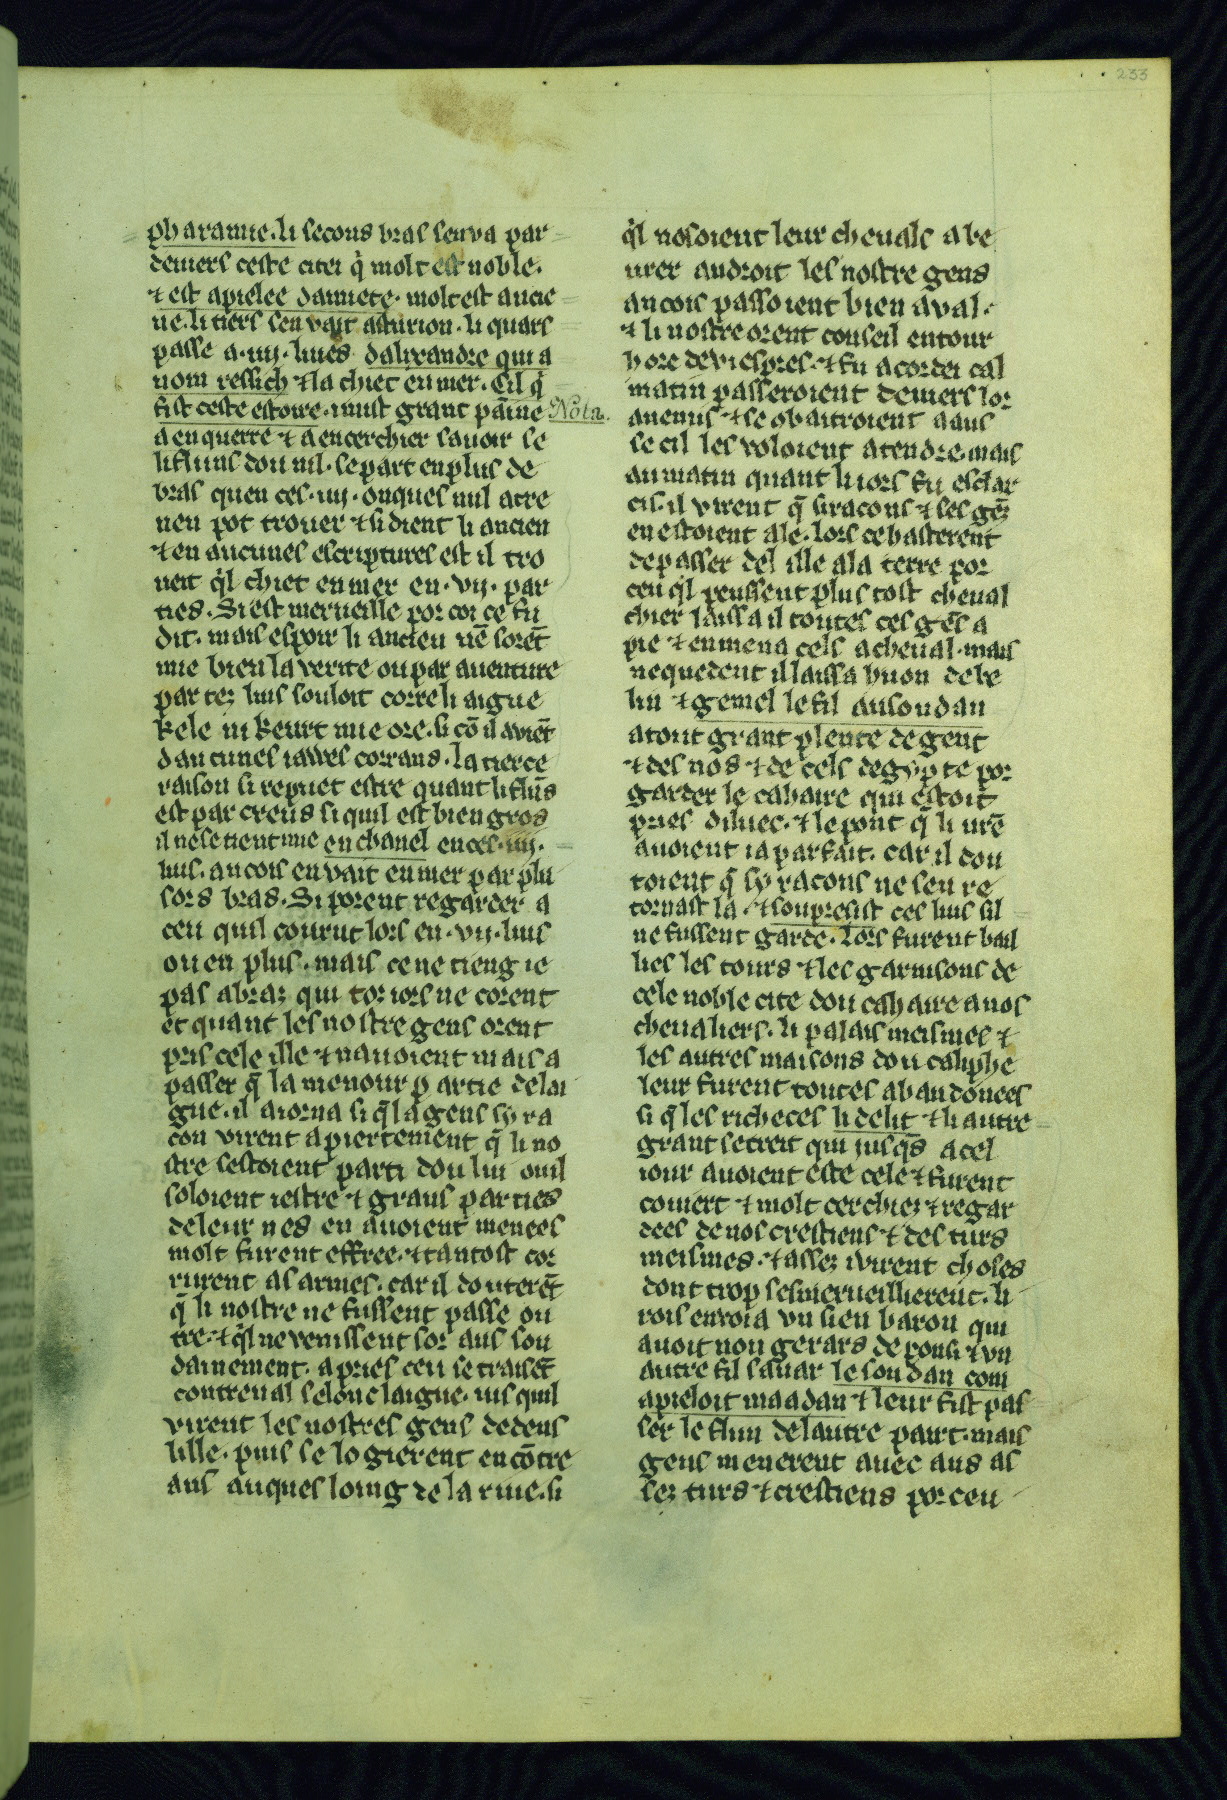 233
pharamie. li secons bras senva par
deuiers ceste citei q̇ molt est noble.
⁊ est apielee damiete. molt est ancie
ne. li tiers sen vait asturion. li quars
passe a .iiij. liues dalixandre qui a
nom ressich ⁊ la chiet en mer. Cil q̇
fist ceste estoire. mist grant pāine
Nota.
a enquerre ⁊ a encerchier sauoir se
li fluns dou nil. se part en plus de
bras quen ces .iiij. onques nul atre
nen pot trouer ⁊ si dient li ancien
⁊ en aucunes escriptures est il tro
ueit q̇l chiet en mer en .vij. par
ties. Si est merueille por coi ce fu
dit. mais espoir li ancien nē sorēt
mie bien la verite ou par auenture
par tez luis souloit corre li aigue
kele ni keurt mie ore. si cō il auiēt
daucunes iawes corrans. la tierce
raison si repuet estre quant li flūs
est par creus si quil est bien gros
il ne se tient mie en chanel en ces .iiij.
luis. ancois en vait en mer par plu
sors bras. Si porent regarder a
ceu quil courut lors en .vij. luis
ou en plus. mais ce ne tieng ie
pas a braz qui toz iors ne corent
et quant les nostre gens orent
pris cele ille ⁊ nauoient mais a
passer q̄ la menour partie de lai
gue. il aiorna si q̄ la gens syra
con virent apiertement q̄ li no
stre sestoient parti dou liu ouil
soloient iestre ⁊ grans parties
de leur nes en auoient menees
molt furent effree. ⁊ tantost cor
rurent as armes. car il douterēt
q̄ li nostre ne fussent passe ou
tre. ⁊ q̇l ne venissent sor aus sou
dainement. apries ceu se traisēt
contreual selonc laigue. iusquil
virent les nostres gens dedens
lille. puis se logierent encōtre
aus auques loing de la riue. si
q̇l nosoient leur cheuals abe
urer androit les nostre gens
ancois passoient bien aual.
⁊ li nostre orent conseil entour
hore de viespres. ⁊ fu acordei cal
matin passeroient deuiers lor
anemis ⁊ se obaitroient a aus
se cil les voloient atendre. mais
au matin quant li iors fu esclar
cis. il virent q̄ siracons ⁊ ses gēz
en estoient ale. lors ce hasterent
de passer del ille a la terre por
ceu q̇l peussent plus tost cheual
chier laissa il toutes ces gēs a
pie ⁊ en mena cels a cheual. mais
nequedent il laissa huon de be
lin ⁊ gemel le fil au soudan
a tout grant plente de gent
⁊ des nos ⁊ de cels degypte por
garder le cahaire qui estoit
pries diluec. ⁊ le pont q̄ li nrē
auoient ia parfait. car il dou
toient q̄ syracons ne sen re
tornast la. ⁊ soupresist ces luis sil
ne fussent garde. lors furent bail
lies les tours ⁊ les garnisons de
cele noble cite dou cahaire a nos
cheualiers. li palais meismes ⁊
les autres maisons dou caliphe
leur furent toutes abandonees
si q̄ les richeces li delit ⁊ li autre
grant secreit qui jusq̄s a cel
iour auoient este cele ⁊ furent
couiert ⁊ molt cerchiez ⁊ regar
dees de nos crestiens ⁊ des turs
meismes. ⁊ assez i virent choses
dont trop sesmerueillierent. li
rois enuoia vn sien baron qui
auoit non gerars de pons. ⁊ vn
autre fil sauar le soudan com
apieloit maadan ⁊ leur fist pas
ser le flun de lautre pairt. mais
gens menerent auec aus as
sez turs ⁊ crestiens por ceu